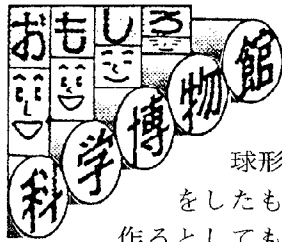 おもしろ
科学博物館
球形
をしたも
作ろとしても